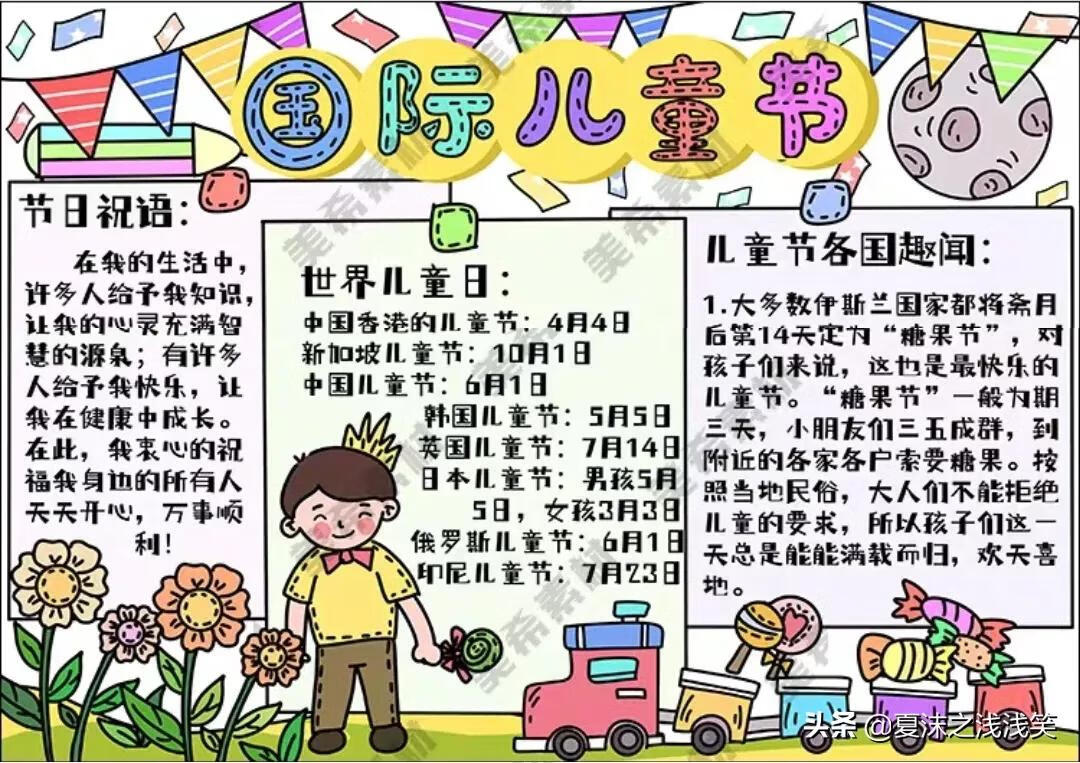 国际儿童节
节日祝语：
在我的生活中，
许多人给予我知识，
让我的心灵充满智
慧的源泉；有许多
人给予我快乐，让
我在健康中成长。
在此，我衷心的祝
福我身边的所有人
天天开心，万事顺
利！
世界儿童日：
中国香港的儿童节：4月4日
新加坡儿童节：10月1日
中国儿童节：6月1日
韩国儿童节：5月5日
英国儿童节：7月14日
日本儿童节：男孩5月
5日，女孩3月3日
俄罗斯儿童节：6月1日
印尼儿童节：7月23日
儿童节各国趣闻：
1.大多数伊斯兰国家都将斋月
后第14天定为“糖果节”，对
孩子们来说，这也是最快乐的
儿童节。“糖果节”一般为期
三天，小朋友们三五成群，到
附近的各家各户索要糖果。按
照当地民俗，大人们不能拒绝
儿童的要求，所以孩子们这一
天总是能能满载而归，欢天喜
地。
美希素材
头条 @夏沫之浅浅笑